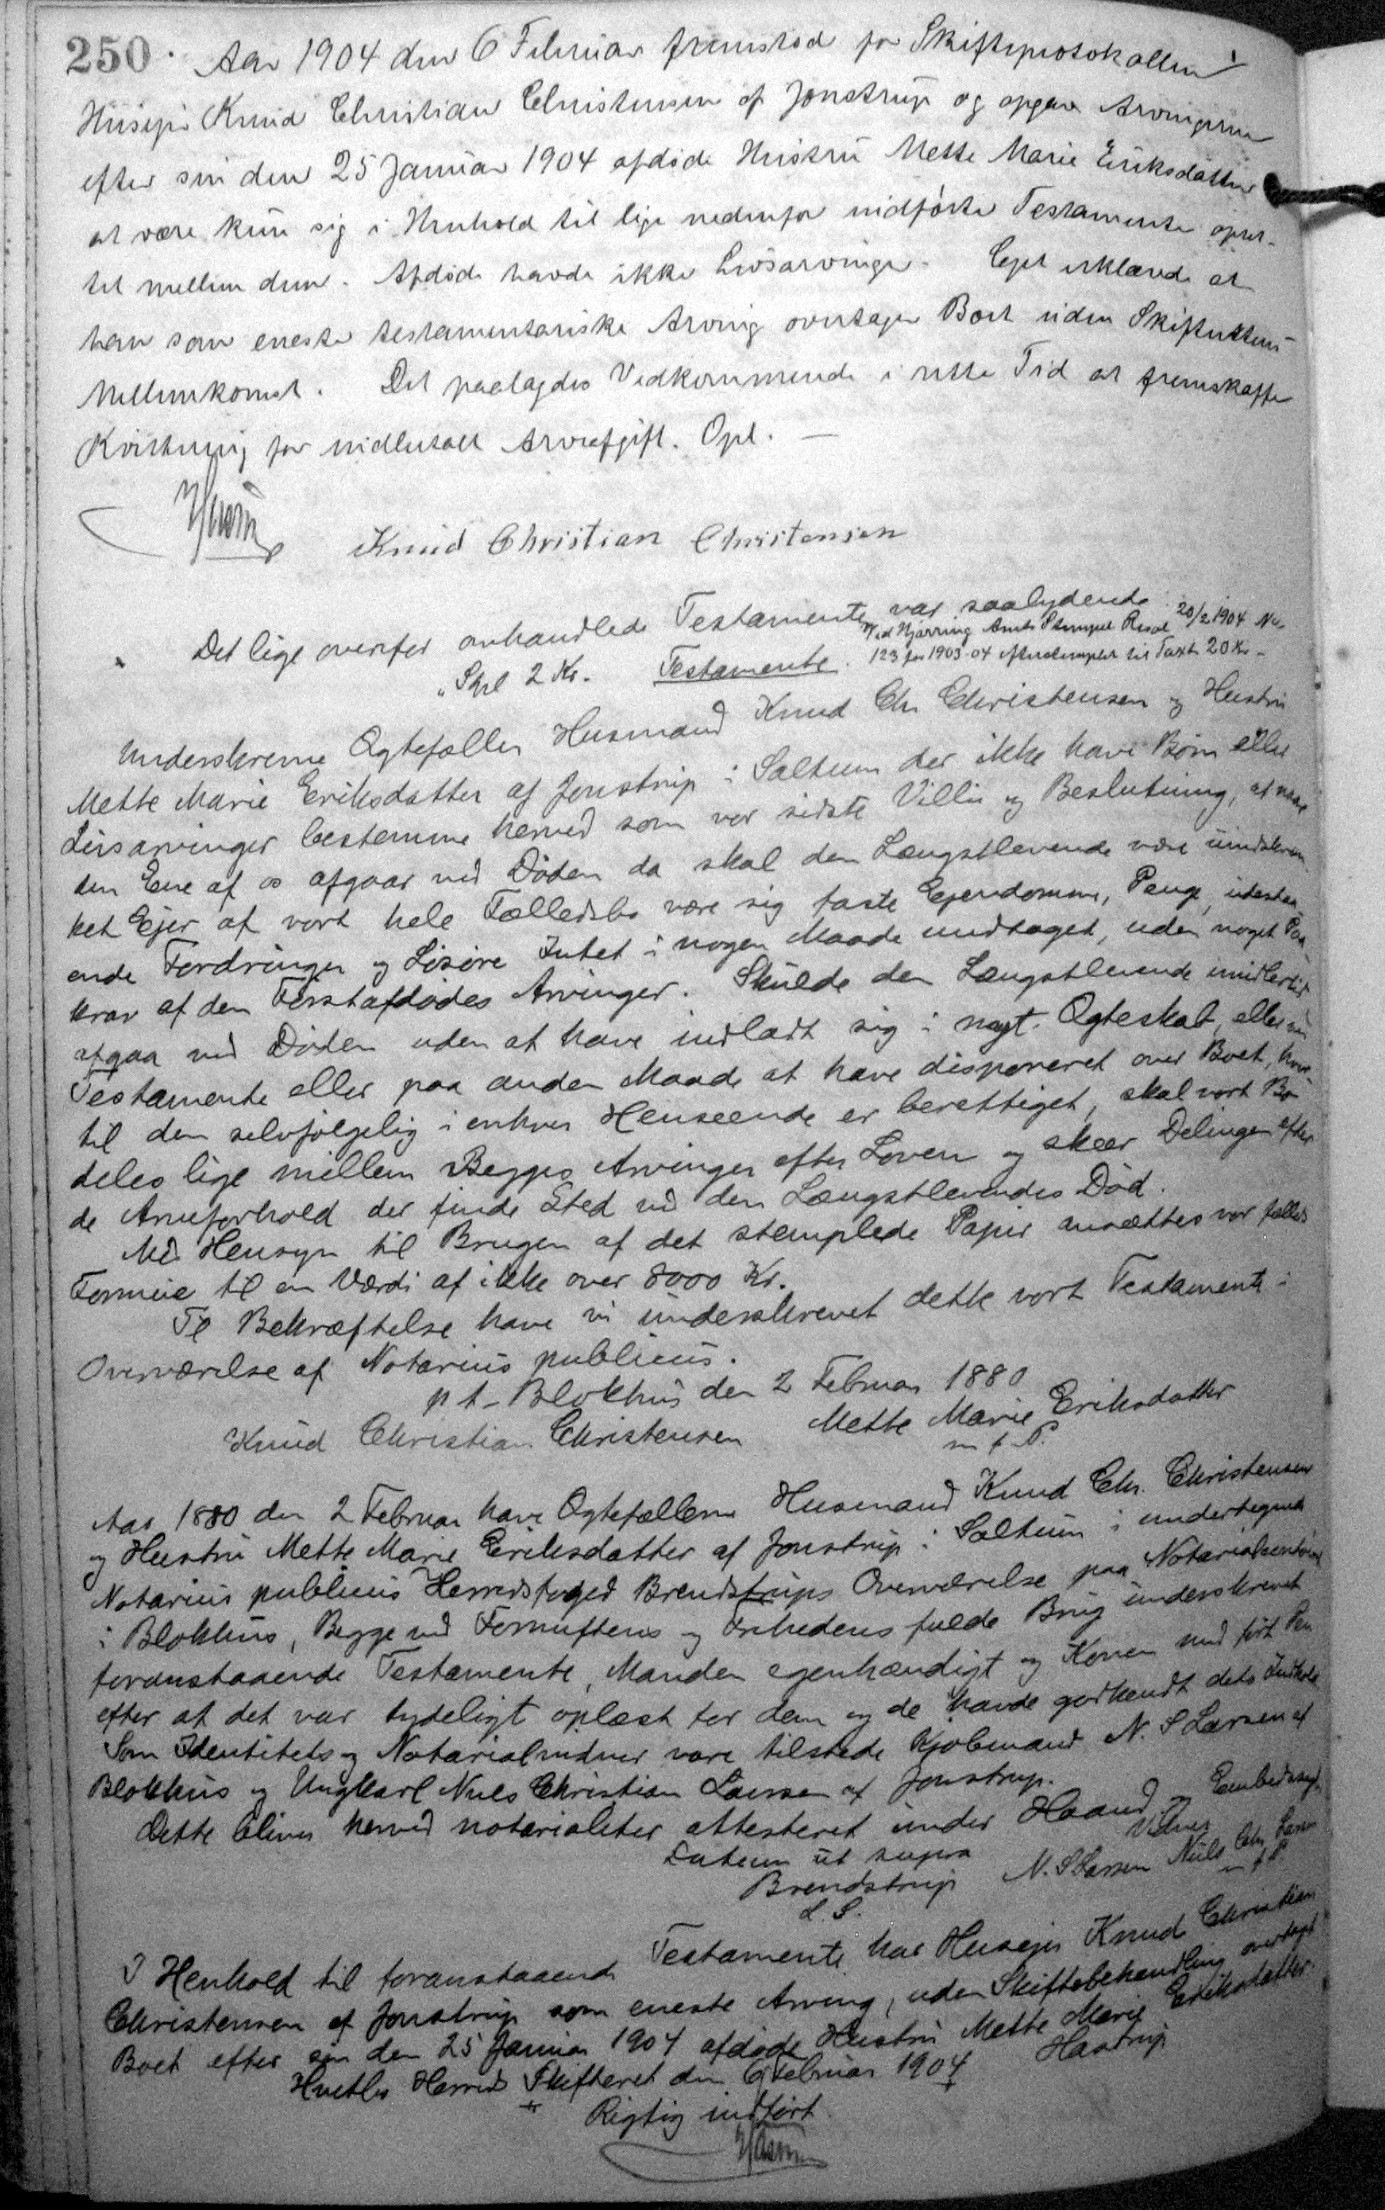 250. Aar 1904 den 6 Februar fremstod for Skifteprotokollen
Husejer Knud Christian Christensen af Jonstrup og opgav Arvingerne
efter sin den 25 Januar 1904 afdøde Hustru Mette Marie Eriksdatter
at være kun sig i Henhold til lige nedenfor indførte Testamente opret-
tet mellem dem. Afdøde havde ikke Livsarvinger. Cpt erklærede at
han som eneste testamentariske Arving overtager Boet uden Skifterettens
Mellemkomst. Det paalagdes Vedkommende i rette Tid at fremskaffe
Kvittering for indbetalt Arveafgift. Opl. —
Knud Christian Christensen
Det lige ovenfor omhandlede Testamente var saalydende
Ved Hjørring Amts Stempel Resol 20/2 1904 No
"Stpl 2 Kr. Testamente. 123 for 1903-04 efterstemplet til Taxt 20 Kr. -
Underskrevne Ægtefæller Husmand Knud Chr Christensen og Hustru
Mette Marie Eriksdatter af Jonstrup i Saltum der ikke have Børn eller
Livsarvinger bestemme herved som vor sidste Villie og Beslutning, at naar
den Ene af os afgaar ved Døden da skal den Længstlevende være uindskræn
ket Ejer af vort hele Fælledsbo være sig faste Ejendomme, Penge, udestaa-
ende Fordringer og Løsøre Intet i nogen Maade undtaget, uden noget Paa
krav af den Førstafdødes Arvinger. Skulde den Længstlevende imidlertid
afgaa ved Døden uden at have indladt sig i nyt Ægteskab, eller ved
Testamente eller paa anden Maade at have disponeret over Boet, hvor
til den selvfølgelig i enhver Henseende er berettiget, skal vort Bo
deles lige mellem Begges Arvinger efter Loven og skeer Delingen efter
de Arveforhold der finde Sted ved den Længstlevendes Død.
Med Hensyn til Brugen af det stemplede Papir ansættes vor fælleds
Formue til en Værdi af ikke over 8000 Kr.
Til Bekræftelse have vi underskrevet dette vort Testamente i
Overværelse af Notarius publicus.
p t. Blokhus den 2 Februar 1880
Knud Christian Christensen Mette Marie Eriksdatter
m f P.
Aar 1880 den 2 Februar have Ægtefællerne Husmand Knud Chr. Christensen
og Hustru Mette Marie Eriksdatter af Jonstrup i Saltum i undertegnede
Notarius publicus Herredsfoged Brendstrups Overværelse paa Notarialkontoret
i Blokhus, Begge ved Fornuftens og Frihedens fulde Brug underskrevet
foranstaaende Testamente, Manden egenhændigt og Konen med ført Pen
efter at det var tydeligt oplæst for dem og de havde godkendt dets Indhold
Som Identitets og Notarialvidner vare tilstede Kjøbmand N. S Larsen af
Blokhus og Ungkarl Niels Christian Larsen af Jonstrup.
Dette bliver herved notarialiter attesteret under Haand og Embedssegl.
Datum ut supra Vidner
Brendstrup N. S Larsen Niels Chr. Larsen
L. S. m f P.
I Henhold til foranstaaende Testamente har Husejer Knud Christian
Christensen af Jonstrup som eneste Arving, uden Skiftebehandling overtaget
Boet efter sin den 25 Januar 1904 afdøde Hustru Mette Marie Eriksdatter.
Hvetbo Herreds Skifteret den 6 Februar 1904 Hastrup
Rigtig indført